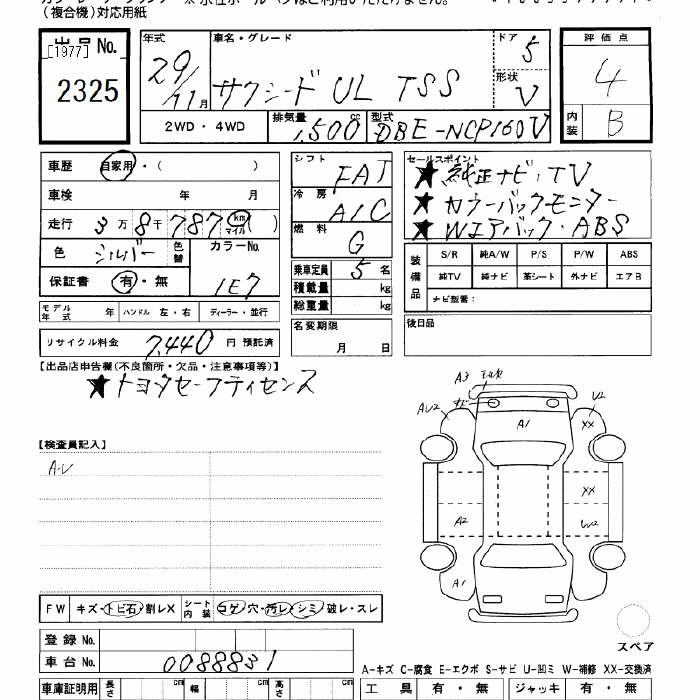 （複合機）対応用紙
出品No.
[1977]
2325
年式
29/11月
車名・グレード
サクシード UL TSS
ドア
5
形状
V
評価点
4
内装
B
2WD・4WD
排気量
1,500cc
型式
DBE-NCP160V
車歴 自家用・( )
車検 年 月
走行 3万8千787 km マイル ( )
色 シルバー 色替 カラーNo.
1E7
保証書 有・無
モデル年式 年 ハンドル 左・右 ディーラー・並行
リサイクル料金 7,440 円 預託済
シフト FAT
冷房 A/C
燃料 G
乗車定員 5 名
積載量 kg
総重量 kg
名変期限
月 日
セールスポイント
★純正ナビ・TV
★カラーバックモニター
★Wエアバック・ABS
装備品
S/R 純A/W P/S P/W ABS
純TV 純ナビ 革シート 外ナビ エアB
ナビ型番：
後日品
【出品店申告欄(不良箇所・欠品・注意事項等)】
★トヨタセーフティセンス
【検査員記入】
A-U
A3
AU2
A1
U2
XX
XX
A2
W2
A1
スペア
FW キズ・トビ石・割レX シート内装 コゲ・穴・汚レ・シミ・破レ・スレ
登録No.
車台No. 0088831
車庫証明用 長さ cm 幅 cm 高さ cm
A-キズ C-腐食 E-エクボ S-サビ U-凹ミ W-補修 XX-交換済
工具 有・無 ジャッキ 有・無